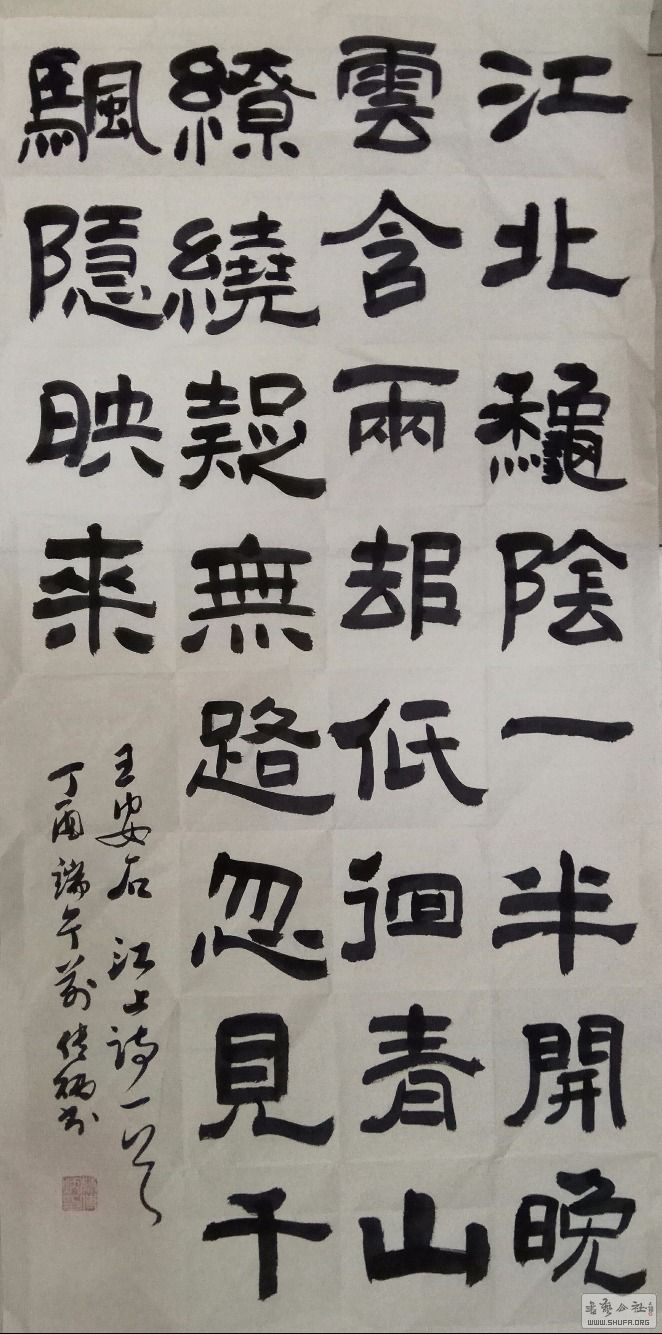 江北龝陰一半開晚
雲含雨却低徊青山
繚繞疑無路忽見千
颿隱映來
王安石 江上詩一首
丁酉端午
書藝公社
WWW.SHUFA.ORG